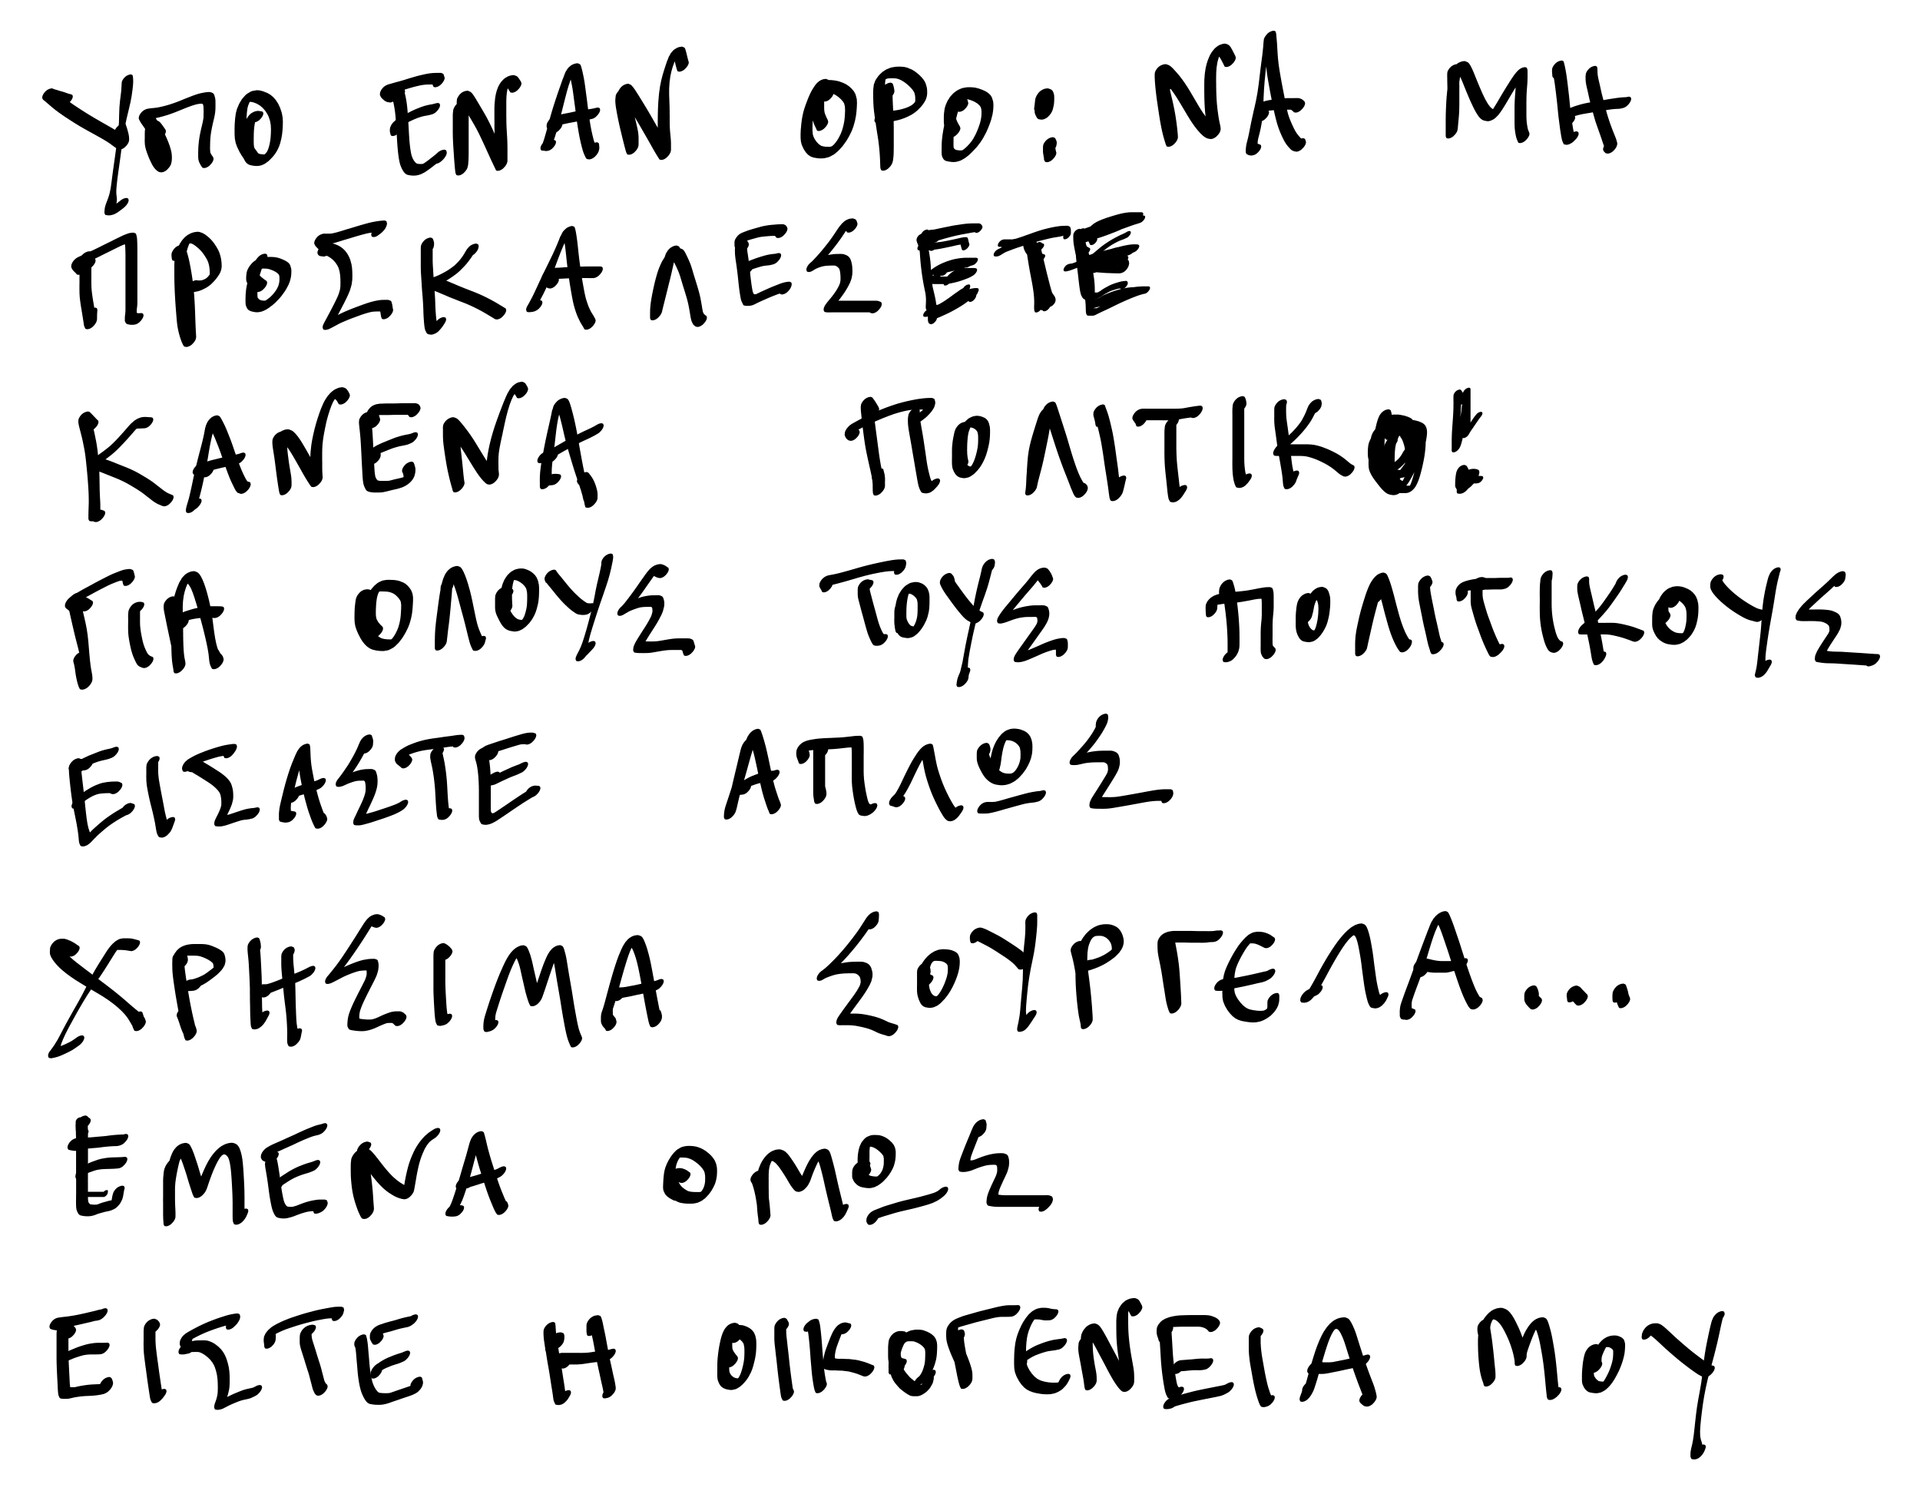 ΥΠΟ ΕΝΑΝ ΟΡΟ: ΝΑ ΜΗ
ΠΡΟΣΚΑΛΕΣΕΤΕ
ΚΑΝΕΝΑ ΠΟΛΙΤΙΚΟ!
ΓΙΑ ΟΛΟΥΣ ΤΟΥΣ ΠΟΛΙΤΙΚΟΥΣ
ΕΙΣΑΣΤΕ ΑΠΛΩΣ
ΧΡΗΣΙΜΑ ΣΟΥΡΓΕΛΑ...
ΕΜΕΝΑ ΟΜΩΣ
ΕΙΣΤΕ Η ΟΙΚΟΓΕΝΕΙΑ ΜΟΥ